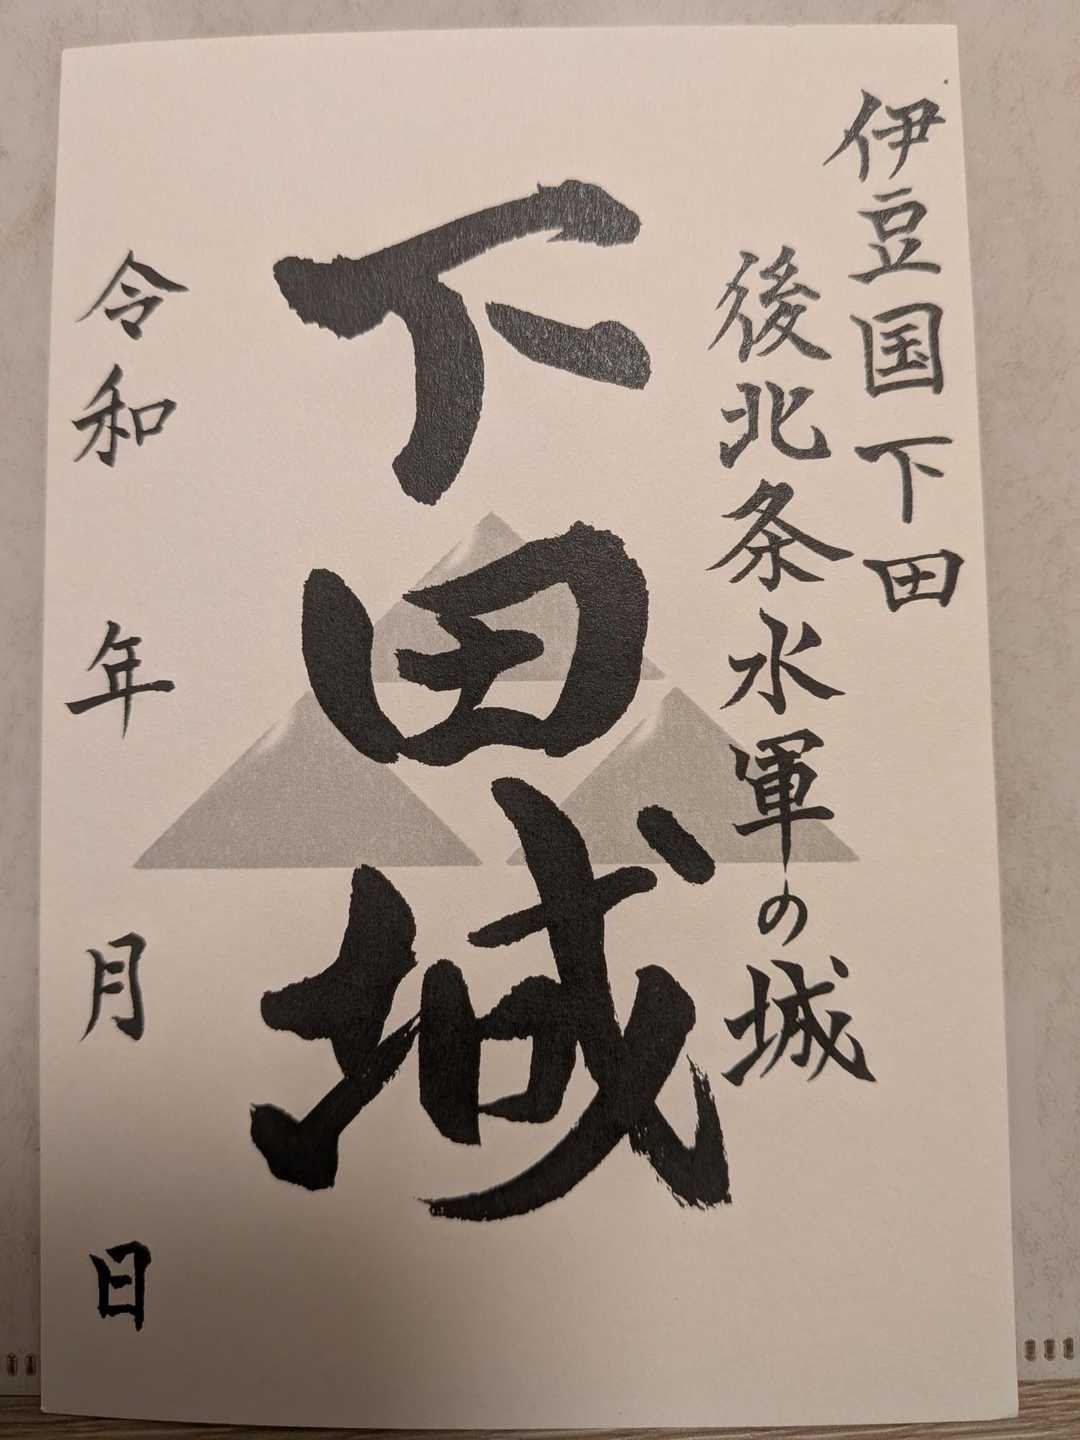 伊豆国下田
後北条水軍の城
下田城
令和 年 月 日